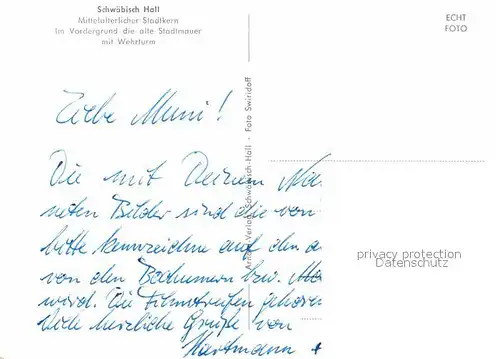 Schwäbisch Hall
Mittelalterlicher Stadtkern
Im Vordergrund die alte Stadtmauer
mit Wehrturm
ECHT
FOTO
Liebe Muni!
Die mit Deinem
neten Bilder sind die von
bitte kennzeichne auf den
von den Bochumern bzw.
wird. Die Filmstreifen gehören
Viele herzliche Grüße von
Hartmann +
Verlag Schwäbisch-Hall · Foto Swiridoff
privacy protection
Datenschutz